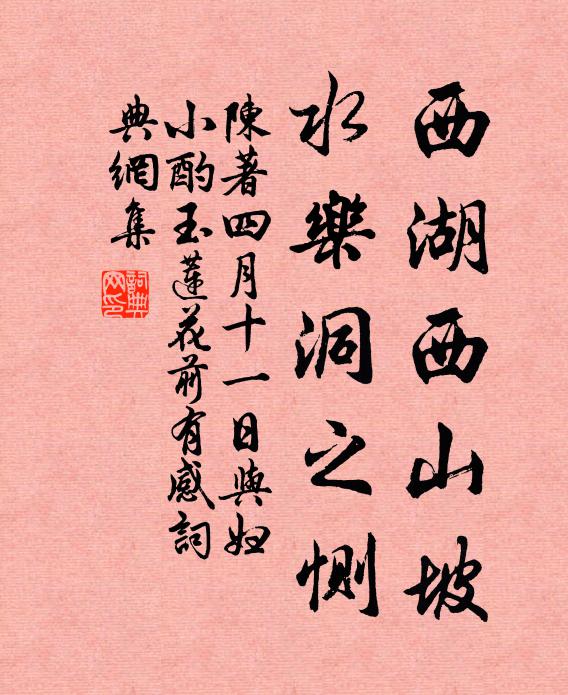 西湖西山坡
水樂洞之惻
陳著四月十一日與妞
小酌玉蓮花前有感詞
典網集
詞典
网印